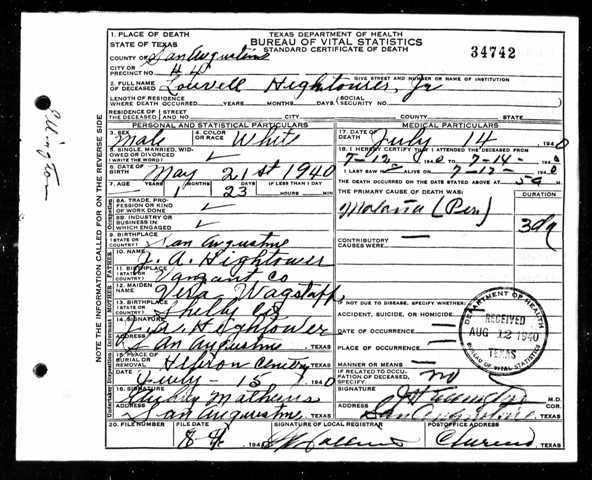 TEXAS DEPARTMENT OF HEALTH
BUREAU OF VITAL STATISTICS
STANDARD CERTIFICATE OF DEATH
34742
1. PLACE OF DEATH
STATE OF TEXAS
COUNTY OF San Augustine
CITY OR PRECINCT NO. #4
GIVE STREET AND NUMBER OR NAME OF INSTITUTION
2. FULL NAME OF DECEASED Louvell Hightower, Jr
LENGTH OF RESIDENCE WHERE DEATH OCCURRED YEARS MONTHS DAYS SOCIAL SECURITY NO.
RESIDENCE OF THE DECEASED STREET AND NO. CITY COUNTY STATE
PERSONAL AND STATISTICAL PARTICULARS
3. SEX Male
4. COLOR OR RACE White
5. SINGLE, MARRIED, WIDOWED OR DIVORCED (WRITE THE WORD)
6. DATE OF BIRTH May 21st 1940
7. AGE YEARS 1 MONTHS 23 DAYS IF LESS THAN 1 DAY HOURS MIN
8A. TRADE, PROFESSION OR KIND OF WORK DONE
8B. INDUSTRY OR BUSINESS IN WHICH ENGAGED
9. BIRTHPLACE (STATE OR COUNTRY) San Augustine
10. NAME A. Hightower
11. BIRTHPLACE (STATE OR COUNTRY) Vanzant Co
12. MAIDEN NAME Vera Wagstaff
13. BIRTHPLACE (STATE OR COUNTRY) Shelby Co
14. SIGNATURE Hightower
ADDRESS San Augustine, TEXAS
15. PLACE OF BURIAL OR REMOVAL Hebron TEXAS
DATE July - 15 1940
16. SIGNATURE Mathews
ADDRESS San Augustine TEXAS
MEDICAL PARTICULARS
17. DATE OF DEATH July 14 1940
18. I HEREBY CERTIFY THAT I ATTENDED THE DECEASED FROM
7-12 1940 TO 7-14- 1940
I LAST SAW ALIVE ON 7-12- 1940
THE DEATH OCCURRED ON THE DATE STATED ABOVE AT 5 M
THE PRIMARY CAUSE OF DEATH WAS:
DURATION
Malaria (Per)
3 dy
CONTRIBUTORY CAUSES WERE:
IF NOT DUE TO DISEASE, SPECIFY WHETHER:
ACCIDENT, SUICIDE, OR HOMICIDE
DATE OF OCCURRENCE
PLACE OF OCCURRENCE
MANNER OR MEANS
IF RELATED TO OCCUPATION OF DECEASED, SPECIFY no
SIGNATURE M.D.
ADDRESS San Augustine, TEXAS
20. FILE NUMBER
FILE DATE 194
SIGNATURE OF LOCAL REGISTRAR
POSTOFFICE ADDRESS
TEXAS
DEPARTMENT OF HEALTH
RECEIVED
AUG 12 1940
TEXAS
BUREAU OF VITAL STATISTICS
NOTE THE INFORMATION CALLED FOR ON THE REVERSE SIDE